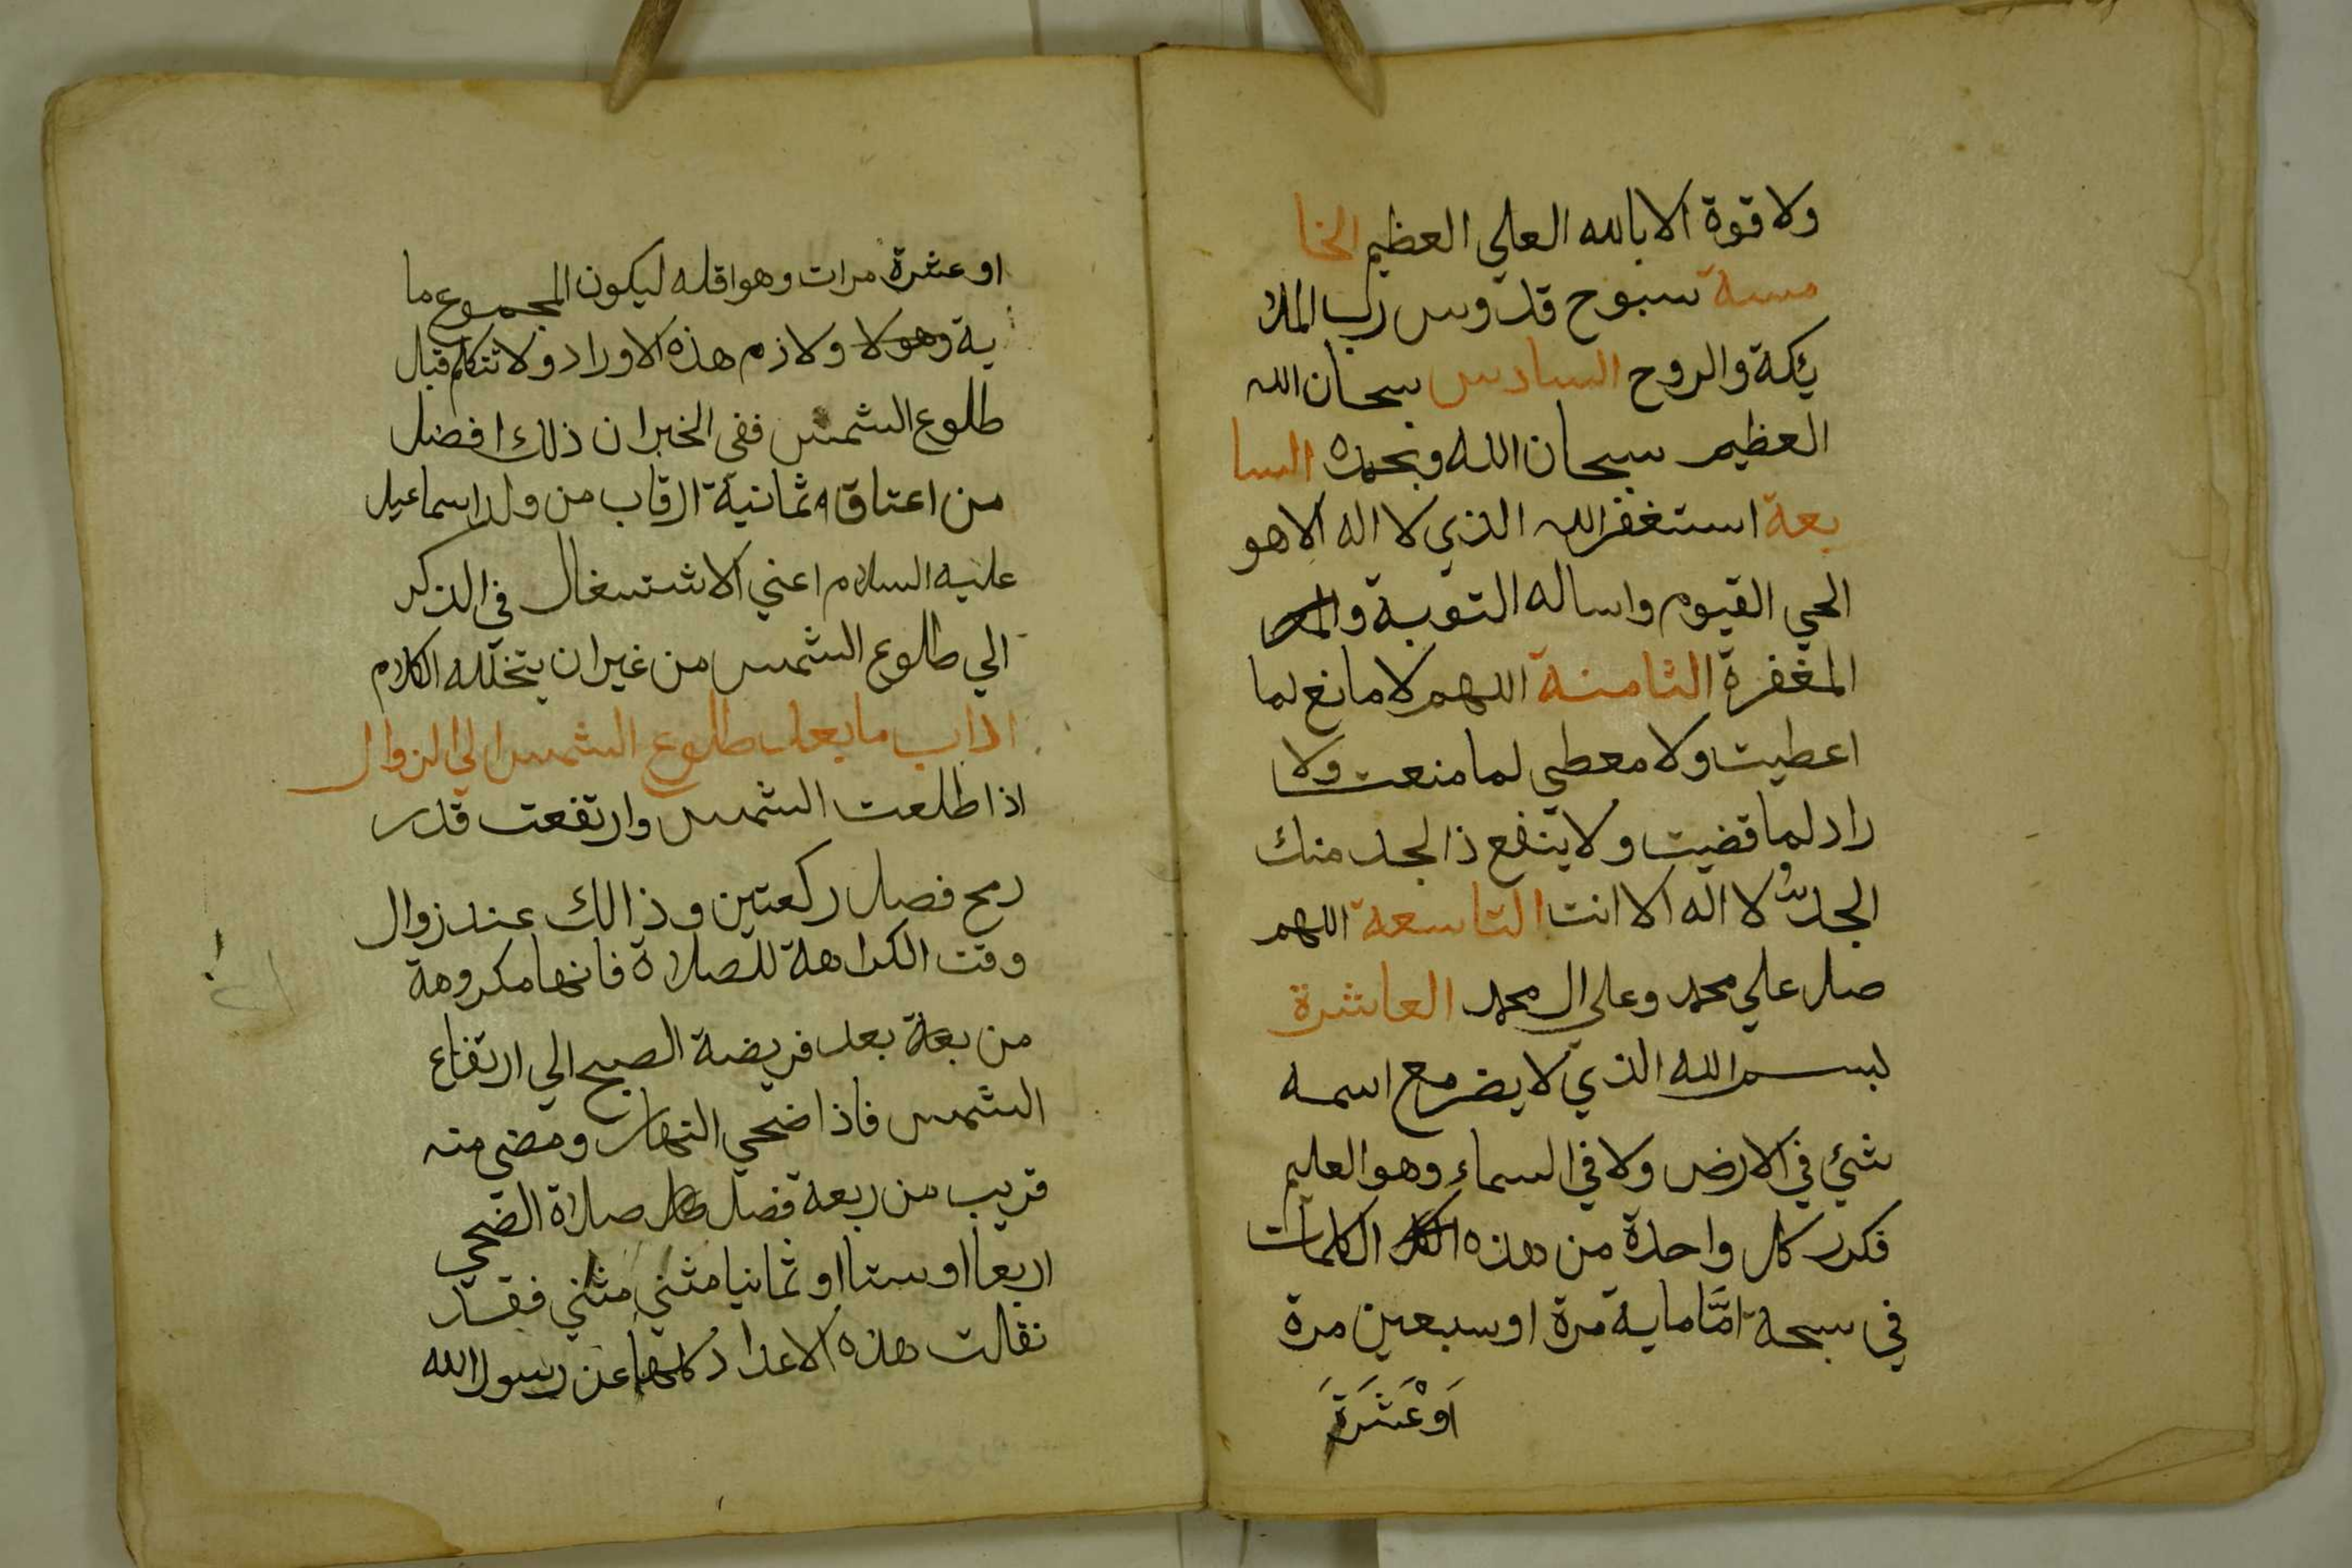 ولا قوة الا بالله العلي العظيم الخا
مسة سبوح قدوس رب الملا
ئكة والروح السادس سبحان الله
العظيم سبحان الله وبحمده السا
بعة استغفر الله الذي لا اله الا هو
الحي القيوم واساله التوبة و
المغفرة الثامنة اللهم لا مانع لما
اعطيت ولا معطي لما منعت ولا
راد لما قضيت ولا ينفع ذا لجد منك
الجد لا اله الا انت التاسعة اللهم
صل علي محمد وعلي ال محمد العاشرة
بسم الله الذي لا يضر مع اسمه
شيئ في الارض ولا في السماء وهو العليم
فكرر كل واحدة من هذه الكلمات
في سبحة امّا ماية مرة او سبعين مرة
اَوْ عَشَرَةَ
او عشرة مرات وهو اقله ليكون المجموع ما
ية ولازم هذه الاوراد ولا تتكلم قبل
طلوع الشمس ففي الخبر ان ذلك افضل
من اعتاق ثمانية ارقاب من ولد اسماعيل
عليه السلام اعني الاشتسغال في الذكر
الي طلوع الشمس من غير ان يتخلله الكلام
اداب ما بعد طلوع الشمس الي الزوال
اذا طلعت الشمس وارتفعت قدر
رمح فصل ركعتين وذالك عند زوال
وقت الكراهة للصلاة فانها مكروهة
من بعد فريضة الصبح الي ارتفاع
الشمس فاذا ضحي النهار ومضي منه
قريب من ربعة فصل صلاة الضحي
اربعا او ستا او ثمانيا مثني مثني فقد
نقالت هذه الاعداد كلها عن رسول الله